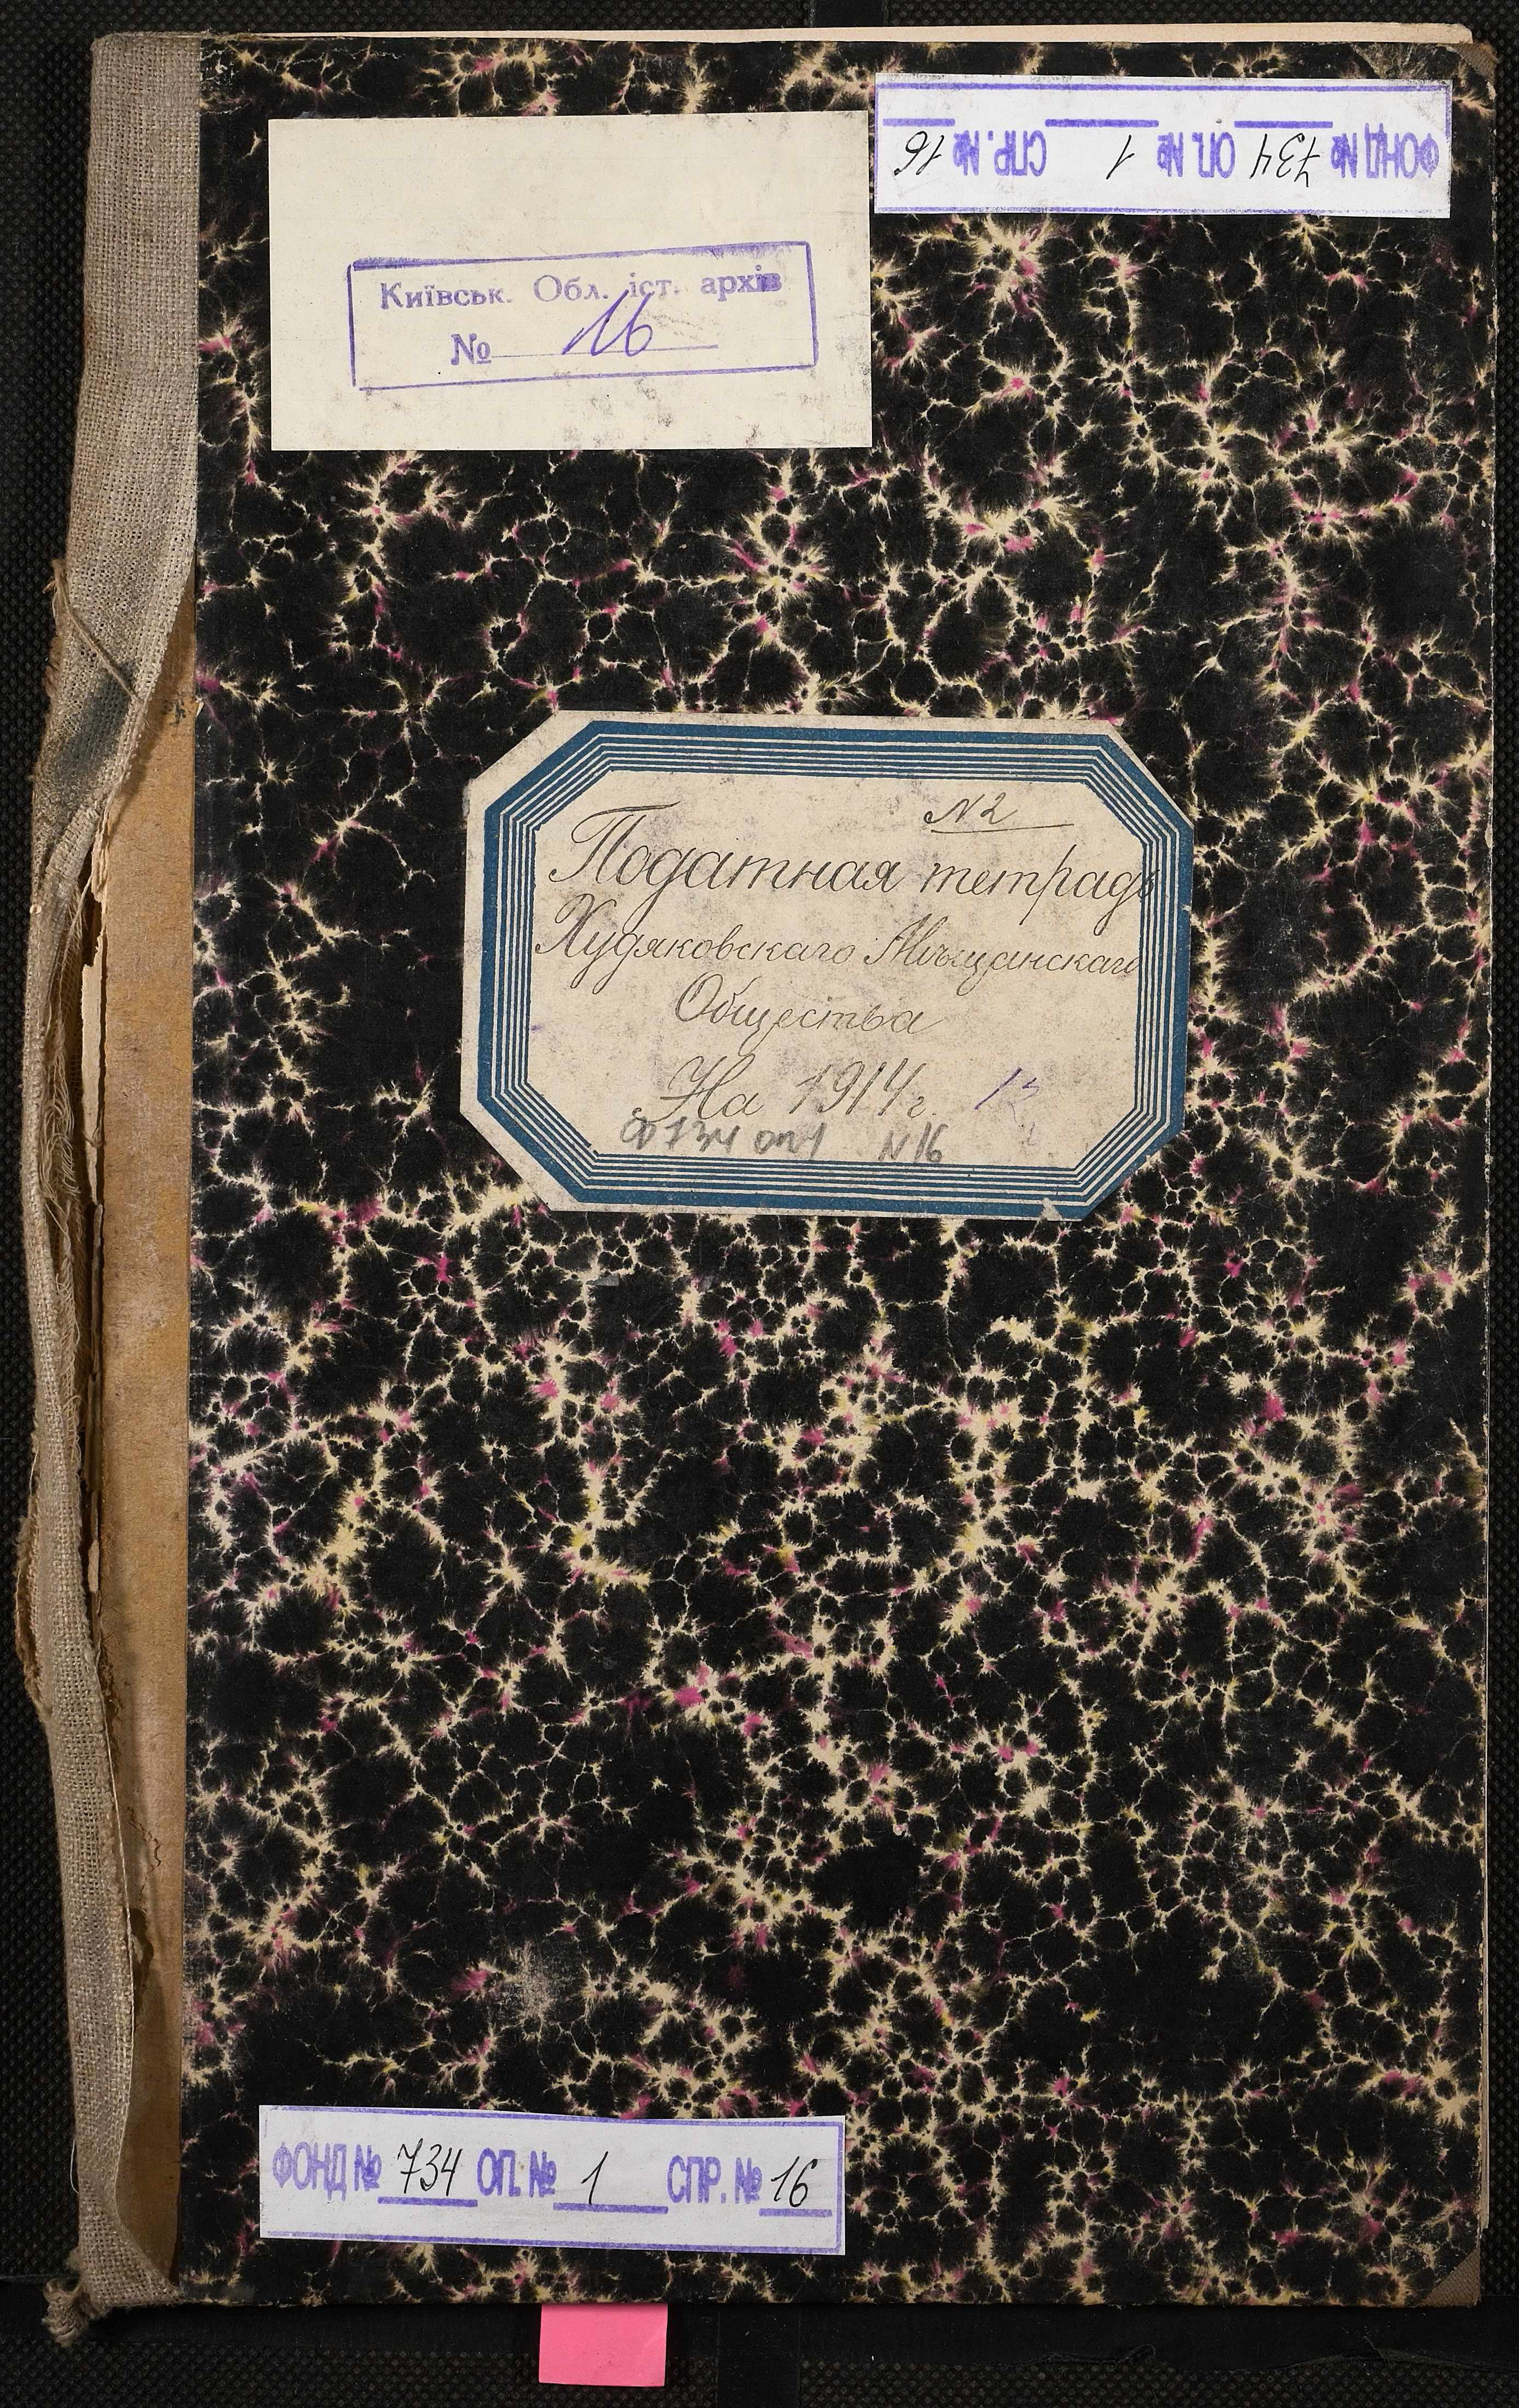 ФОНД № 734 ОП. № 1 СПР. № 16
Київськ. Обл. іст. архів
№ 16
N 2
Податная тетрадь
Худяковскаго Мѣщанскаго
Общества
На 1914 г.
Ф 734 оп 1 N 16
ФОНД № 734 ОП. № 1 СПР. № 16